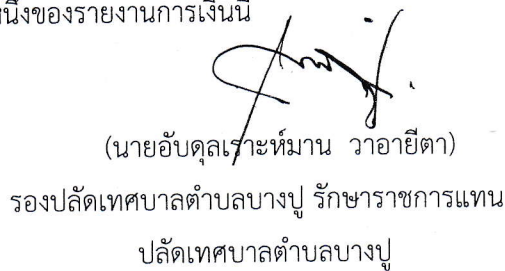 หนึ่งของรายงานการเงินนี้
(นายอับดุลเราะห์มาน วาอายีตา)
รองปลัดเทศบาลตำบลบางปู รักษาราชการแทน
ปลัดเทศบาลตำบลบางปู